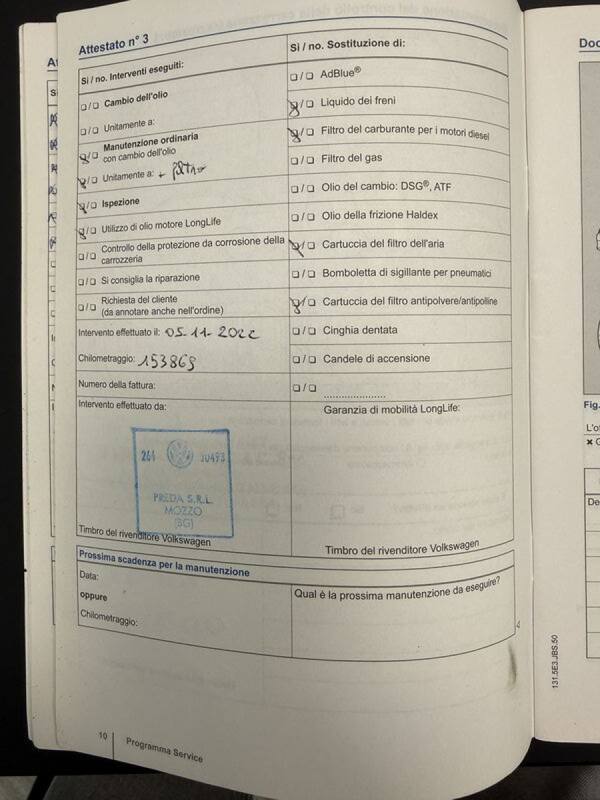 Attestato n° 3
Si / no. Interventi eseguiti:
❑/❑ Cambio dell'olio
❑/❑ Unitamente a:
❑/❑ Manutenzione ordinaria
con cambio dell'olio
❑/❑ Unitamente a: + filtro
❑/❑ Ispezione
❑/❑ Utilizzo di olio motore LongLife
❑/❑ Controllo della protezione da corrosione della
carrozzeria
❑/❑ Si consiglia la riparazione
❑/❑ Richiesta del cliente
(da annotare anche nell'ordine)
Intervento effettuato il: 05-11-2022
Chilometraggio: 153869
Numero della fattura:
Intervento effettuato da:
264 30493
PREDA S.R.L.
MOZZO
(BG)
Timbro del rivenditore Volkswagen
Si / no. Sostituzione di:
❑/❑ AdBlue®
❑/❑ Liquido dei freni
❑/❑ Filtro del carburante per i motori diesel
❑/❑ Filtro del gas
❑/❑ Olio del cambio: DSG®, ATF
❑/❑ Olio della frizione Haldex
❑/❑ Cartuccia del filtro dell'aria
❑/❑ Bomboletta di sigillante per pneumatici
❑/❑ Cartuccia del filtro antipolvere/antipolline
❑/❑ Cinghia dentata
❑/❑ Candele di accensione
❑/❑ ....................
Garanzia di mobilità LongLife:
Timbro del rivenditore Volkswagen
Prossima scadenza per la manutenzione
Data:
oppure
Chilometraggio:
Qual è la prossima manutenzione da eseguire?
10 Programma Service
Doc
Fig.
L'o
De
131.5E3.JBS.50